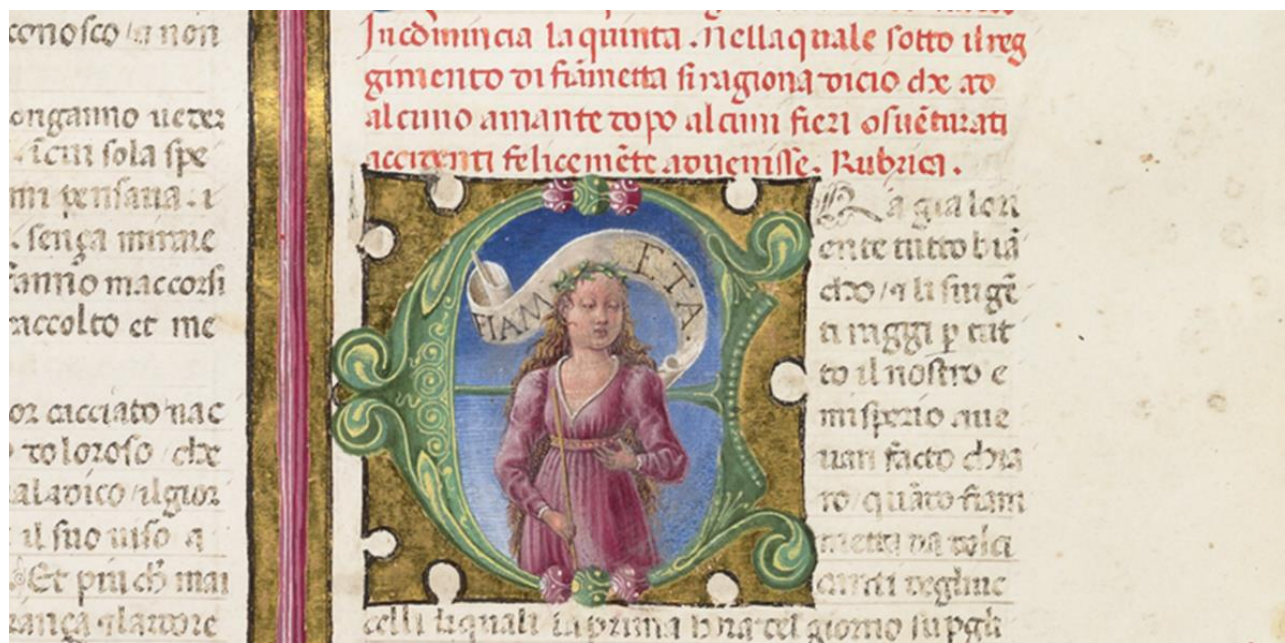 conosco / a non
onganno ueder
. icui sola spe
mi pensaua . i
senza mirare
fanno maccorsi
raccolto et me
or cacciato nac
doloroso / che
maladico / ilgior
il suo uiso a
Et piu ch mai
ranza / lardore
Incomincia la quinta . Nella quale sotto il reg
gimento di fiãmetta si ragiona dicio che ad
alcuno amante dopo alcuni fieri o suẽturati
accidenti felicemẽte aduenisse . Rubrica .
FIAMETA .
Ra gia lori
ente tutto biã
cho / & li surgẽ
ti raggi p tut
to il nostro e
misperio aue
uan facto chia
ro / quãdo fiam
metta da dolci
canti degliuc
celli liquali la prima hora del giorno su pgli